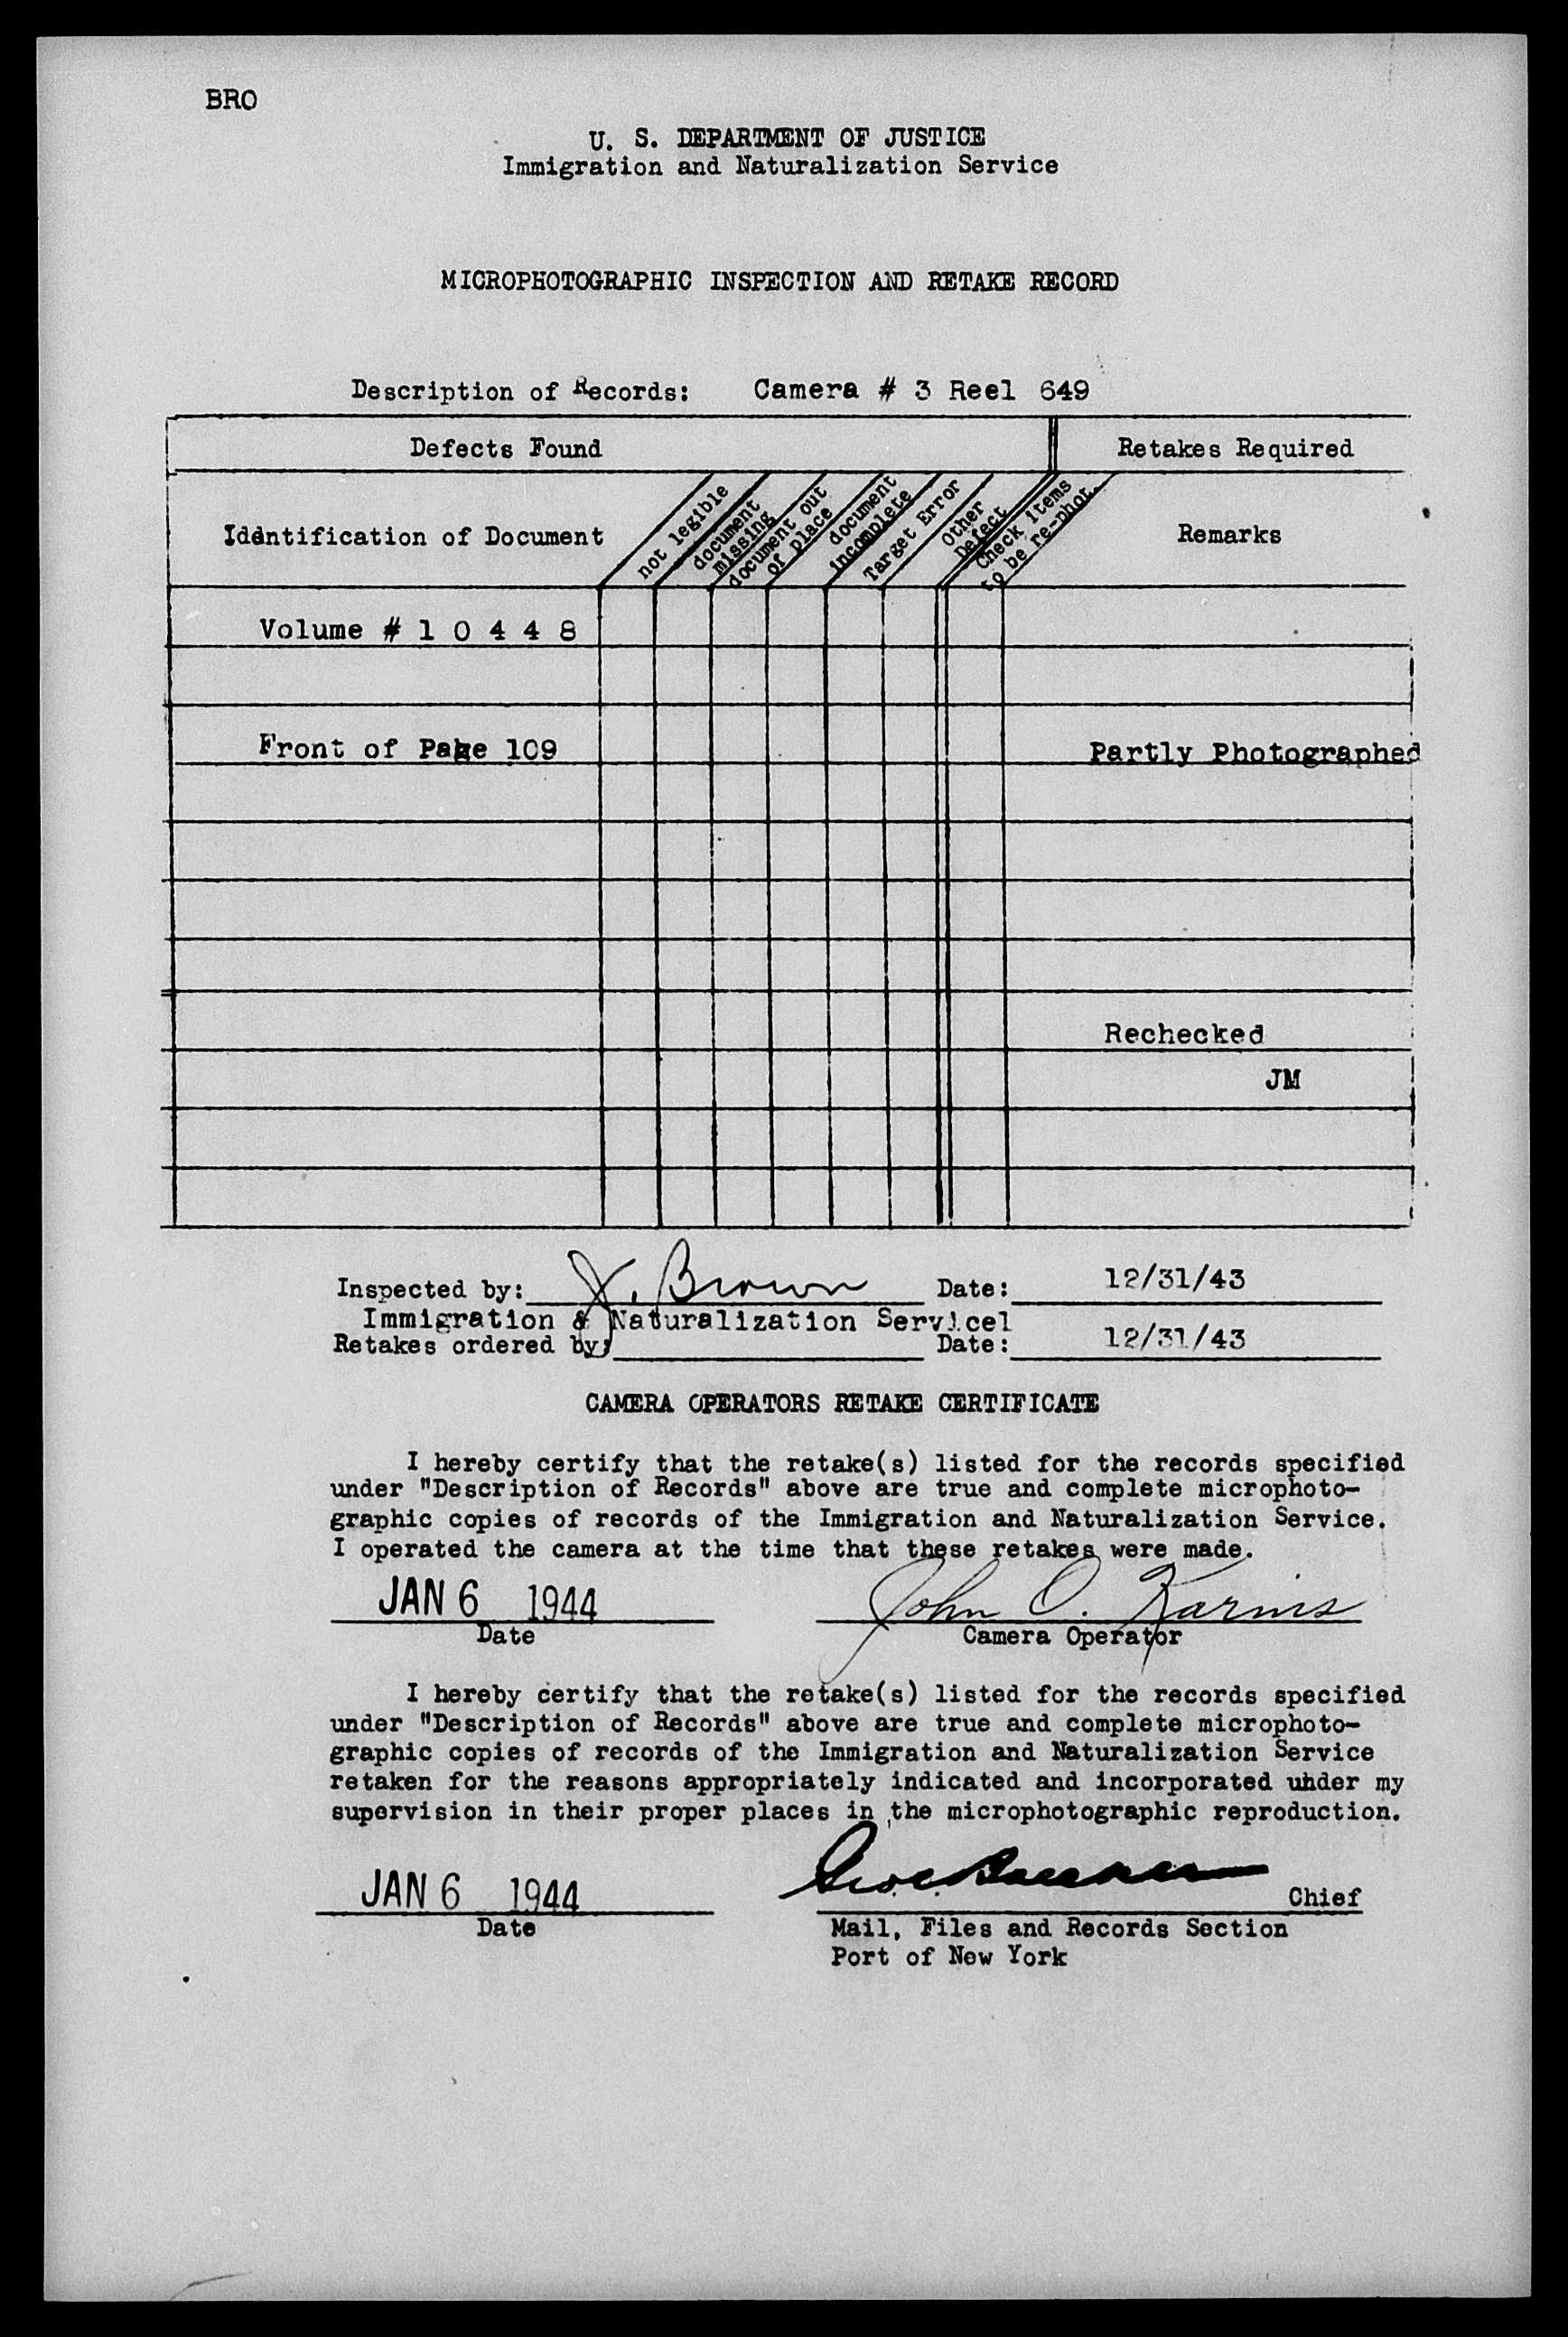 BRO
U. S. DEPARTMENT OF JUSTICE
Immigration and Naturalization Service
MICROPHOTOGRAPHIC INSPECTION AND RETAKE RECORD
Description of Records: Camera # 3 Reel 649
Defects Found
Retakes Required
Identification of Document
not legible
document missing
document out of place
document incomplete
Target Error
Other Defect
Check items to be re-phot.
Remarks
Volume # 1 0 4 4 8
Front of Page 109
Partly Photographed
Rechecked
JM
Inspected by: J. Brown Date: 12/31/43
Immigration & Naturalization Servicel
Retakes ordered by: Date: 12/31/43
CAMERA OPERATORS RETAKE CERTIFICATE
I hereby certify that the retake(s) listed for the records specified
under "Description of Records" above are true and complete microphoto-
graphic copies of records of the Immigration and Naturalization Service.
I operated the camera at the time that these retakes were made.
JAN 6 1944 John O. Karins
Date Camera Operator
I hereby certify that the retake(s) listed for the records specified
under "Description of Records" above are true and complete microphoto-
graphic copies of records of the Immigration and Naturalization Service
retaken for the reasons appropriately indicated and incorporated under my
supervision in their proper places in the microphotographic reproduction.
JAN 6 1944 Chief
Date Mail, Files and Records Section
Port of New York